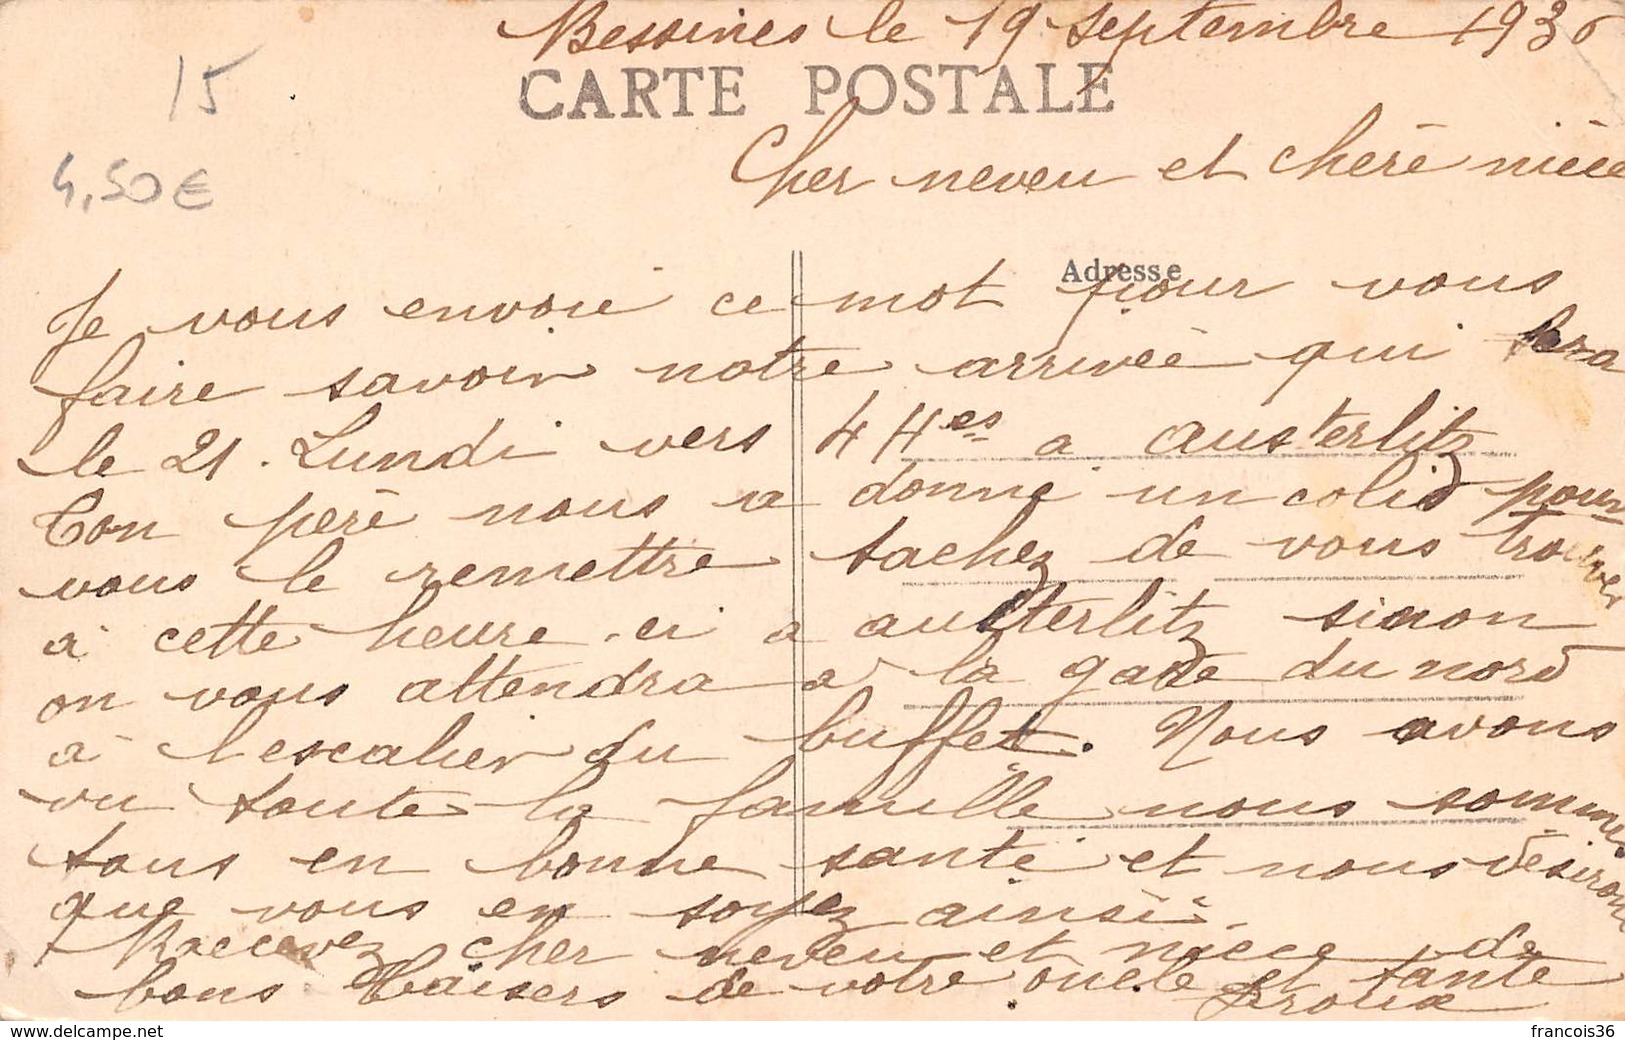 Bessines le 19 Septembre 1936
15
CARTE POSTALE
4,50€
Cher neveu et cherè nièce
Adresse
Je vous envoie ce mot pour vous
faire savoir notre arrivée qui sera
le 21. Lundi vers 4 Hes a austerlitz
Ton perè nous a donné un colis pour
vous le remettre tachez de vous trouver
à cette heure-ci a austerlitz sinon
on vous attendra a la gare du nord
a l'escalier du buffet. Nous avons
vu toute la famille nous sommes
tous en bonne santé et nous désirons
que vous en soyez ainsi.
Recevez cher neveu et niece de
bons Baisers de votre oncle et tante
francois36